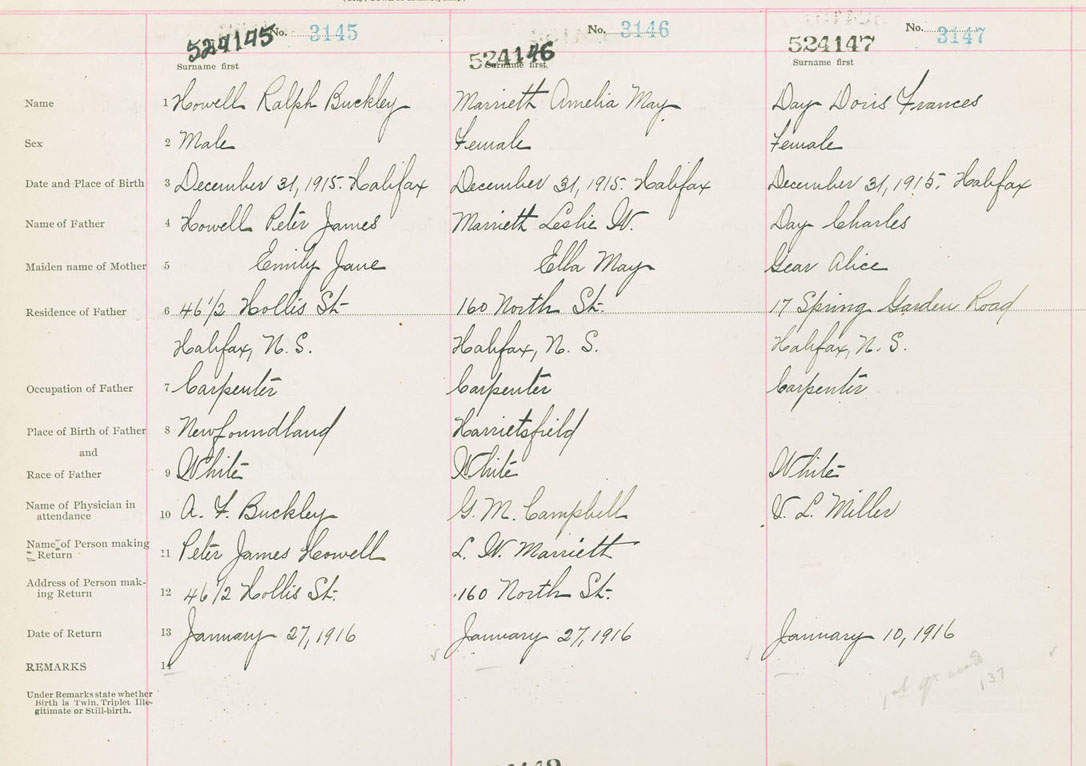 524145 No. 3145 524146 No. 3146 524147 No. 3147
Surname first Surname first Surname first
Name 1 Howell Ralph Buckley Marrieth Amelia May Day Doris Frances
Sex 2 Male Female Female
Date and Place of Birth 3 December 31, 1915. Halifax December 31, 1915. Halifax December 31, 1915, Halifax
Name of Father 4 Howell Peter James Marrieth Leslie W. Day Charles
Maiden name of Mother 5 Emily Jane Ella May Gear Alice
Residence of Father 6 46 1/2 Hollis St. 160 North St. 17 Spring Garden Road
Halifax, N. S. Halifax, N. S. Halifax, N. S.
Occupation of Father 7 Carpenter Carpenter Carpenter
Place of Birth of Father 8 Newfoundland Harrietsfield
and
Race of Father 9 White White White
Name of Physician in
attendance 10 A. F. Buckley G. M. Campbell V. L. Miller
Name of Person making
Return 11 Peter James Howell L. W. Marrieth
Address of Person mak-
ing Return 12 46 1/2 Hollis St. 160 North St.
Date of Return 13 January 27, 1916 January 27, 1916 January 10, 1916
REMARKS 14
137
Under Remarks state whether
Birth is Twin, Triplet Ille-
gitimate or Still-birth.